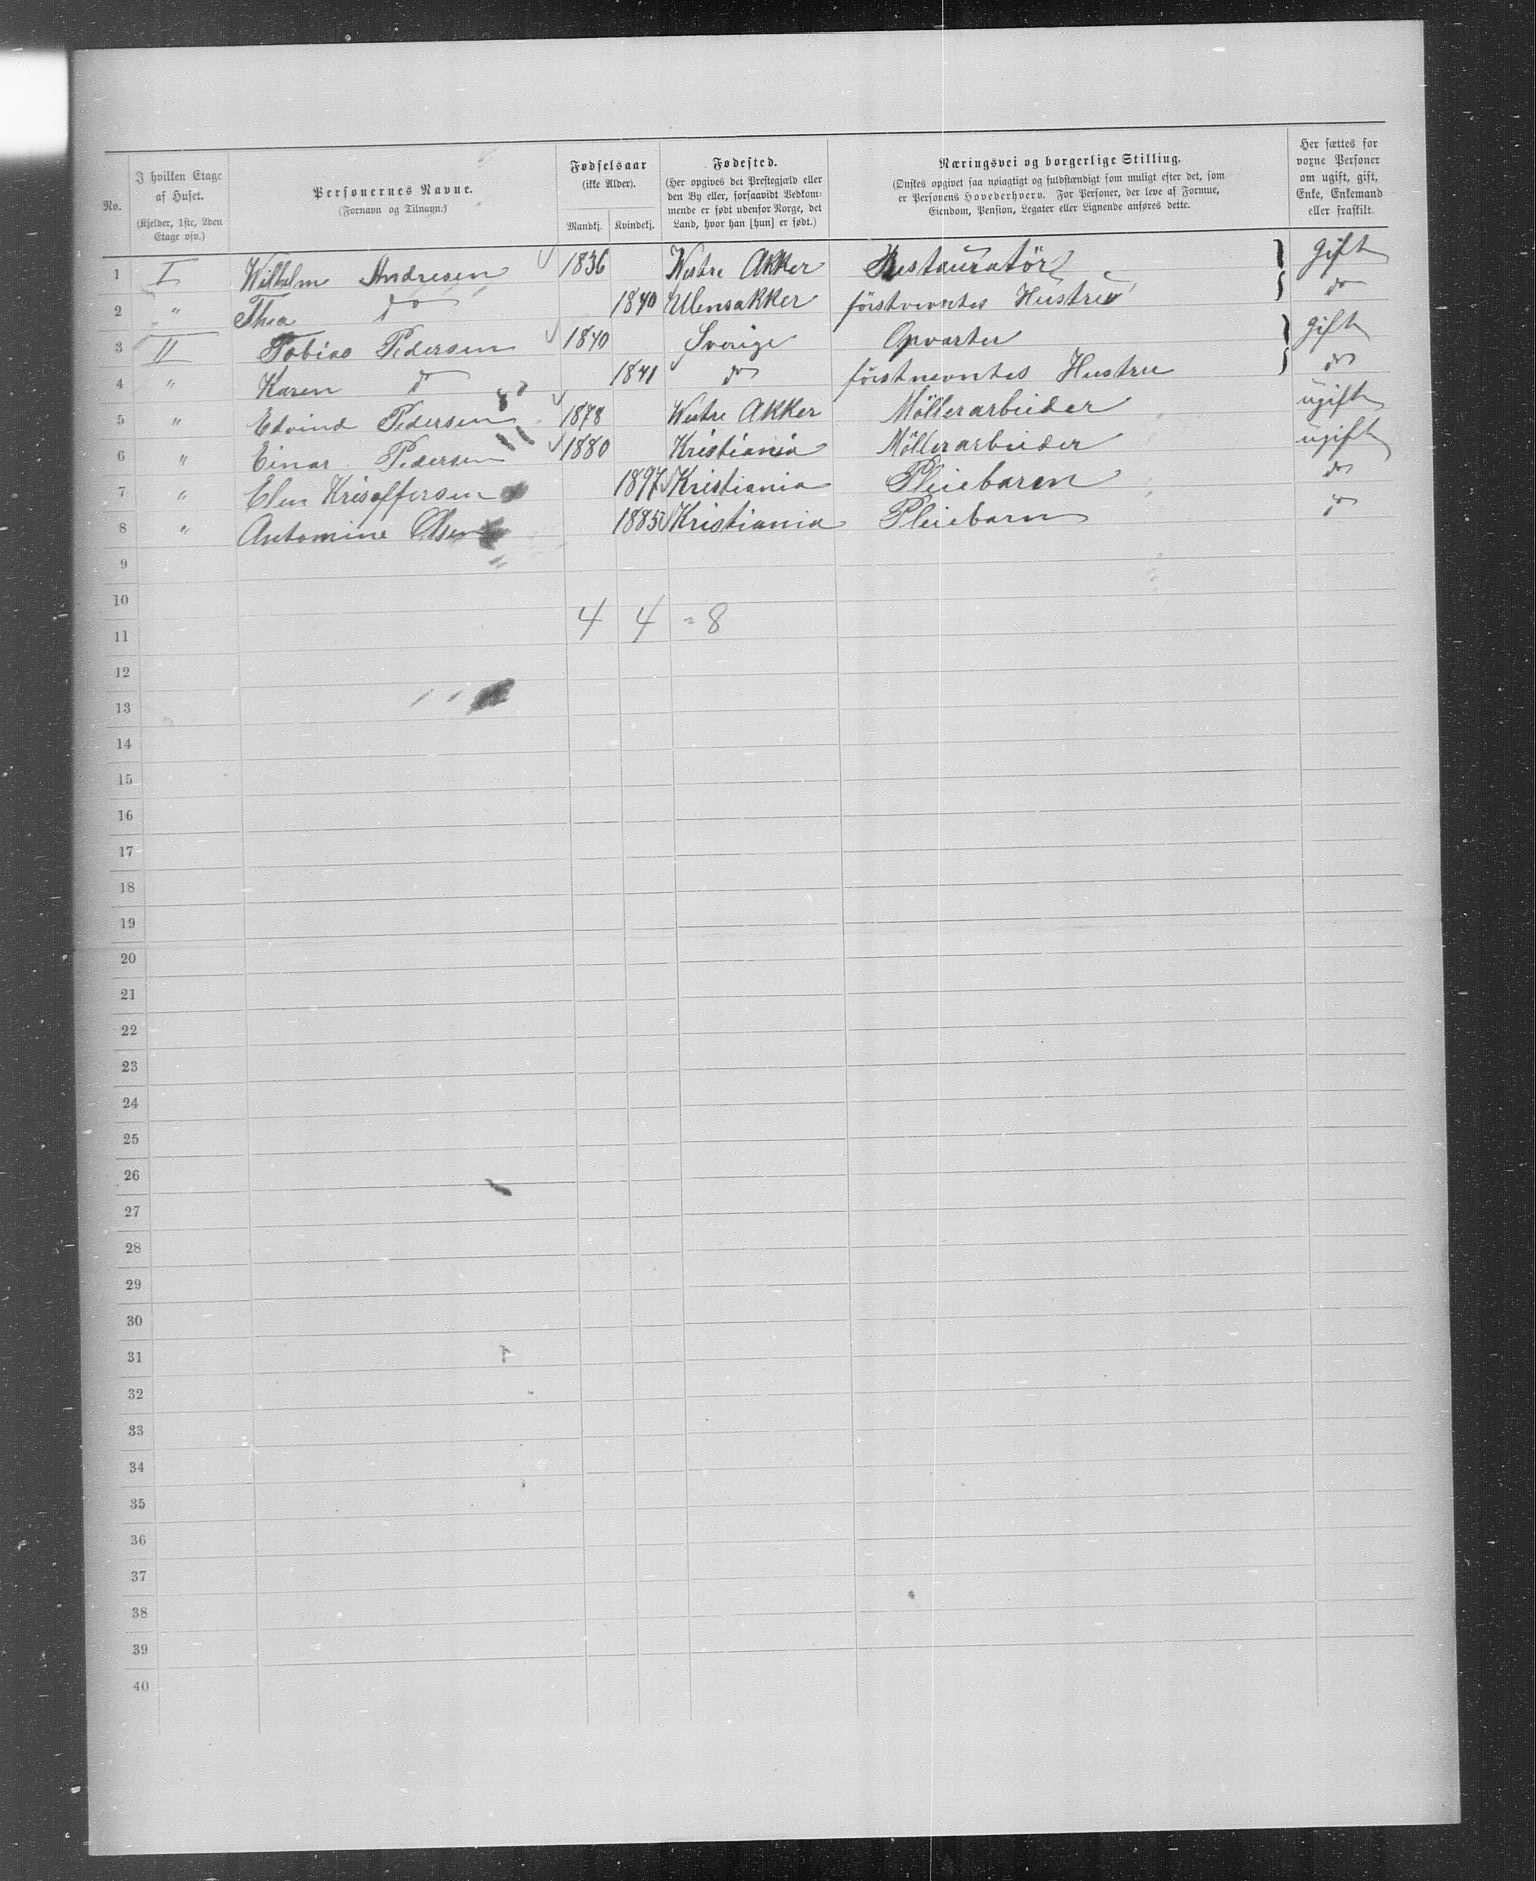 No. | I hvilken Etage af Huset. (Kjelder, 1ste, 2den Etage osv.) | Personernes Navne. (Fornavn og Tilnavn.) | Fødselsaar (ikke Alder). Mandkj. | Kvindekj. | Fødested. (Her opgives det Prestegjæld eller den By eller, forsaavidt Vedkommende er født udenfor Norge, det Land, hvor han [hun] er født.) | Næringsvei og borgerlige Stilling. (Ønskes opgivet saa nøiagtigt og fuldstændigt som muligt efter det, som er Personens Hovederhverv. For Personer, der leve af Formue, Eiendom, Pension, Legater eller Lignende anføres dette. | Her sættes for voxne Personer om ugift, gift, Enke, Enkemand eller fraskilt.
1 | I | Wilhelm Andresen | 1836 | | Westre Akker | Restauratör | } gift
2 | " | Thea do | | 1840 | Ulensakker | förstnevntes Hustru | } do
3 | II | Tobias Pedersen | 1840 | | Sverige | Opvarter | } gift
4 | " | Karen do | | 1841 | do | förstnevntes Hustru | } do
5 | " | Edvind Pedersen | 1878 | | Westre Akker | Möllerarbeider | ugift
6 | " | Einar Pedersen | 1880 | | Kristiania | Möllerarbeider | ugift
7 | " | Elen Krisoffersen | | 1897 | Kristiania | Pleiebaren | do
8 | " | Antomine Olsen | | 1885 | Kristiania | Pleiebarn | do
9
10
4 4 = 8
11
12
13
14
15
16
17
18
19
20
21
22
23
24
25
26
27
28
29
30
31
32
33
34
35
36
37
38
39
40